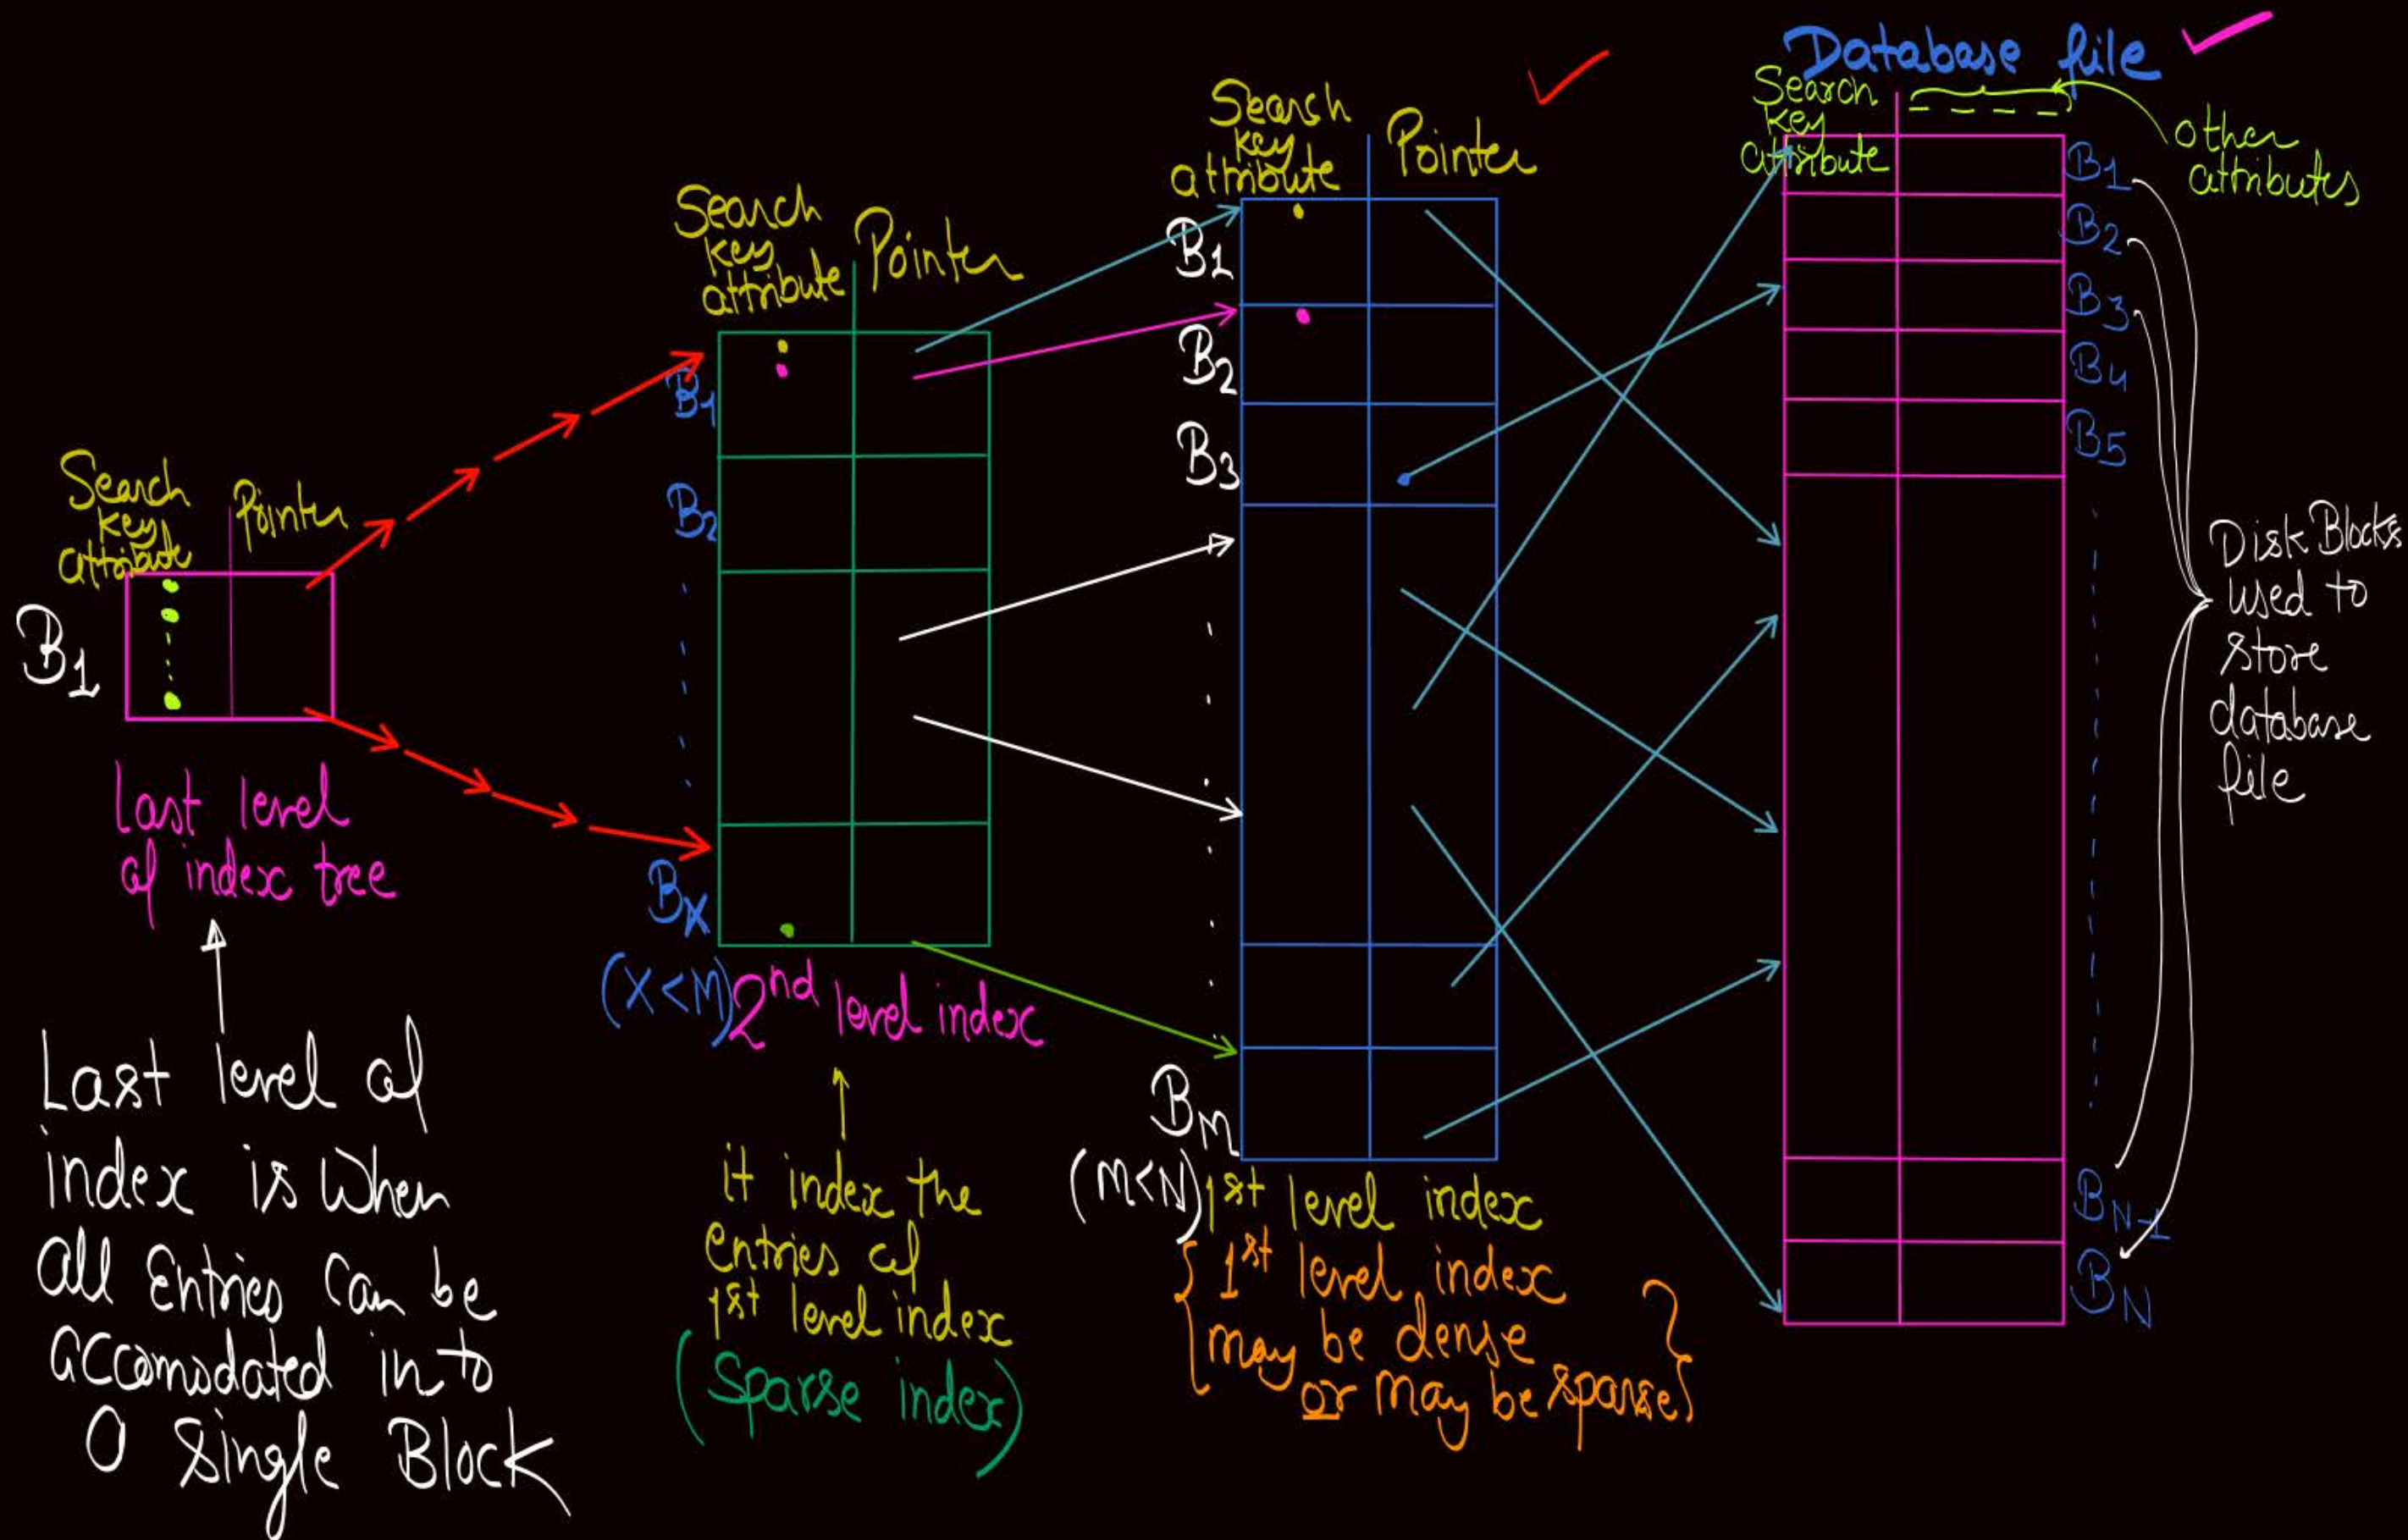 Search
key
attribute
Pointer
B1
Last level
of index tree
Last level of
index is when
all Entries can be
accomodated in to
a single Block
Search
key
attribute
Pointer
B1
B2
BX
(X<M)
2nd level index
it index the
entries of
1st level index
(Sparse index)
Search
key
attribute
Pointer
B1
B2
B3
BM
(M<N)
1st level index
{ 1st level index
may be dense
or may be sparse}
Database file
Search
key
attribute
other
attributes
B1
B2
B3
B4
B5
BN-1
BN
Disk Blocks
used to
store
database
file